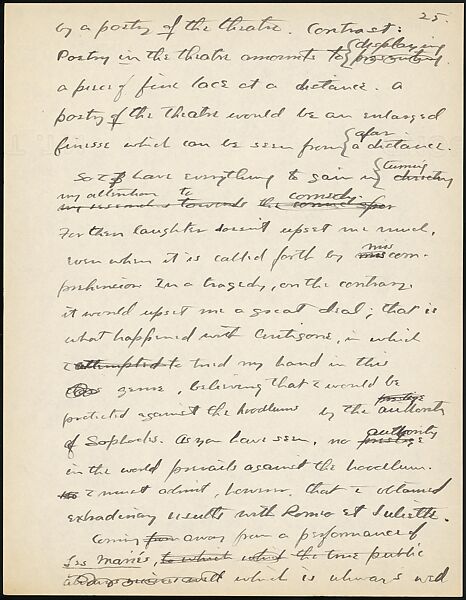 25.
by a poetry of the theatre. Contrast:
displaying
Poetry in the theatre amounts to presenting
a piece of fine lace at a distance. A
poetry of the theatre would be an enlarged
afar.
finesse which can be seen from a distance.
turning
So I have everything to gain in directing
my attention to comedy.
my research towards the comic
For then laughter doesn't upset me much,
even when it is called forth by miscom-
prehension. In a tragedy, on the contrary
it would upset me a great deal; that is
what happened with Antigone, in which
I attempted to tried my hand in this
genre, believing that I would be
prestige
protected against the hoodlums by the authority
of Sophocles. As you have seen, no prestige
authority
in the world prevails against the hoodlum.
I must admit, however, that I obtained
extraordinary results with Romeo et Juliette.
Coming from away from a performance of
Les Mariés, to which the true public
which is always